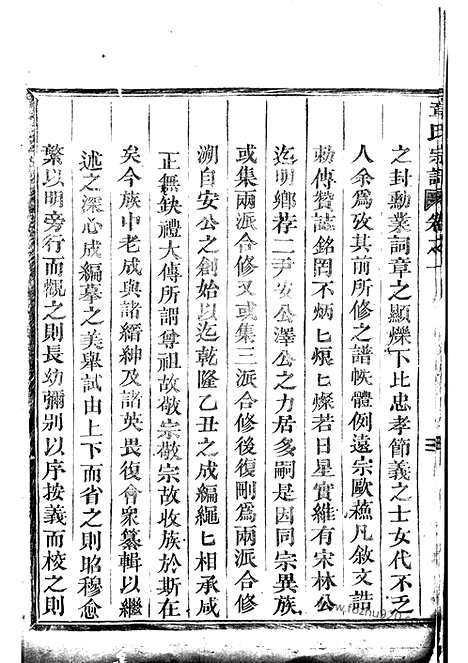 章氏宗譜 卷之一
之封勳業詞章之顯爍下比忠孝節義之士女代不乏
人余爲攷其前所修之譜帙體例遠宗歐蘇凡敘文誥
勅傳贊誌銘罔不炳匕烺匕燦若日星實維有宋林公
迄明鄉荐二尹安公澤公之力居多嗣是因同宗異族
或集兩派合修或集三派合修後復剛爲兩派合修
溯自安公之創始以迄乾隆乙丑之成編繩匕相承咸
正無缺禮大傳所謂尊祖故敬宗敬宗故收族於斯在
矣今族中老成與諸縉紳及諸英畏復會衆纂輯以繼
述之深心成編摹之美舉試由上下而省之則昭穆愈
繁以明旁行而觀之則長幼彌别以序按義而校之則